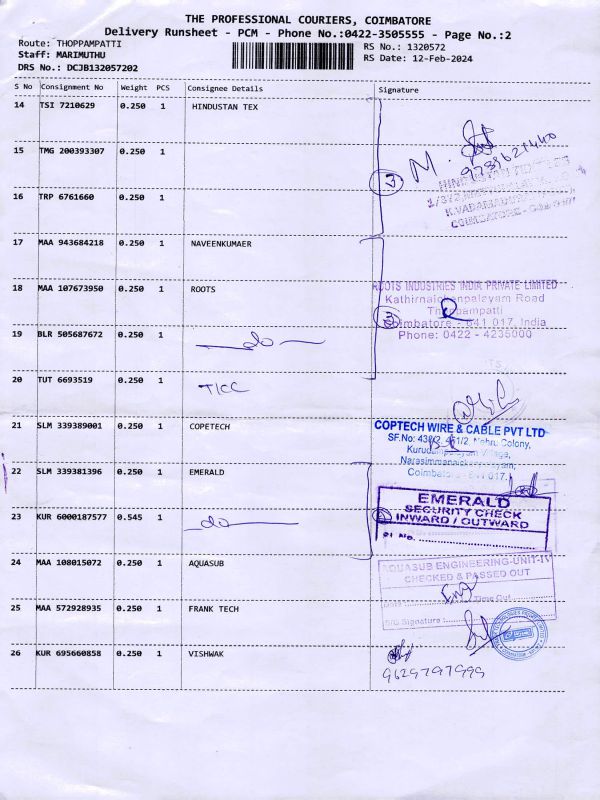 THE PROFESSIONAL COURIERS, COIMBATORE
Delivery Runsheet - PCM - Phone No.:0422-3505555 - Page No.:2
Route: THOPPAMPATTI
RS No.: 1320572
Staff: MARIMUTHU
RS Date: 12-Feb-2024
DRS No.: DCJB132057202
S No Consignment No Weight PCS Consignee Details Signature
14 TSI 7210629 0.250 1 HINDUSTAN TEX
15 TMG 200393307 0.250 1
M.
3
16 TRP 6761660 0.250 1
COIMBATORE
17 MAA 943684218 0.250 1 NAVEENKUMAER
18 MAA 107673950 0.250 1 ROOTS
ROOTS INDUSTRIES INDIA PRIVATE LIMITED
Kathirnaickenpalayam Road
Thoppampatti
Coimbatore - 641 017, India
Phone: 0422 - 4235000
19 BLR 505687672 0.250 1 do
20 TUT 6693519 0.250 1 TICC
21 SLM 339389001 0.250 1 COPETECH
COPTECH WIRE & CABLE PVT LTD
SF.No: Nehru Colony,
Kurudampalayam Village,
Coimbatore 017.
22 SLM 339381396 0.250 1 EMERALD
EMERALD
SECURITY CHECK
INWARD / OUTWARD
Sl No.
23 KUR 6000187577 0.545 1 do
24 MAA 108015072 0.250 1 AQUASUB
AQUASUB ENGINEERING-UNIT-IV
CHECKED & PASSED OUT
Date Time Out
S/G Signature :
25 MAA 572928935 0.250 1 FRANK TECH
26 KUR 695660858 0.250 1 VISHWAK
9629797999